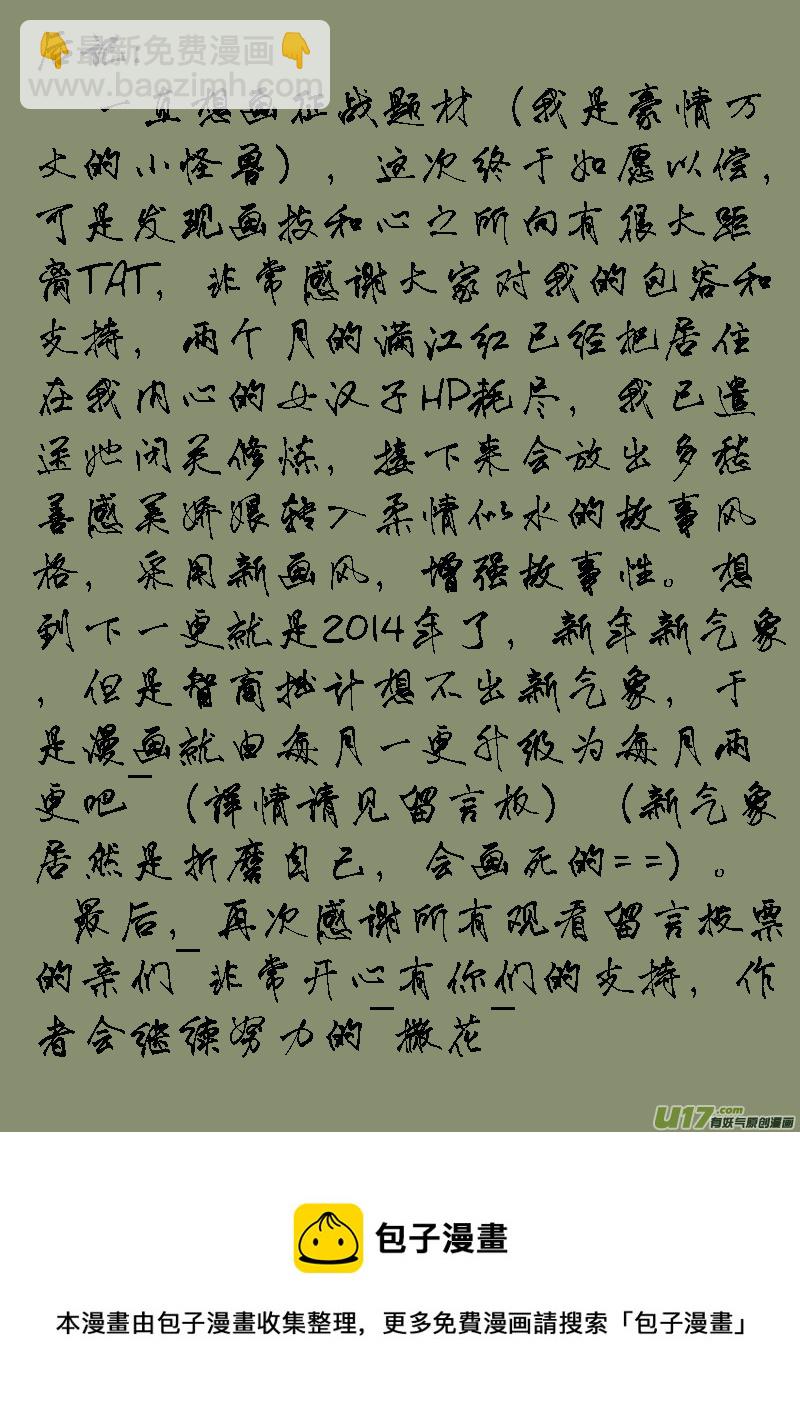 👇最新免费漫画👇
www.baozimh.com
记：
一直想画征战题材（我是豪情万
丈的小怪兽），这次终于如愿以偿，
可是发现画技和心之所向有很大距
离TAT，非常感谢大家对我的包容和
支持，两个月的满江红已经把居住
在我内心的女汉子HP耗尽，我已遣
送她闭关修炼，接下来会放出多愁
善感美娇娘转入柔情似水的故事风
格，采用新画风，增强故事性。想
到下一更就是2014年了，新年新气象
，但是智商拙计想不出新气象，于
是漫_画就由每月一更升级为每月两
更吧 （详情请见留言板）（新气象
居然是折磨自己，会画死的==）。
最后，_再次感谢所有观看留言投票
的亲们 非常开心有你们的支持，作
者会继续努力的_撒花_
U17.com
有妖气原创漫画
包子漫畫
本漫畫由包子漫畫收集整理，更多免費漫画請搜索「包子漫畫」